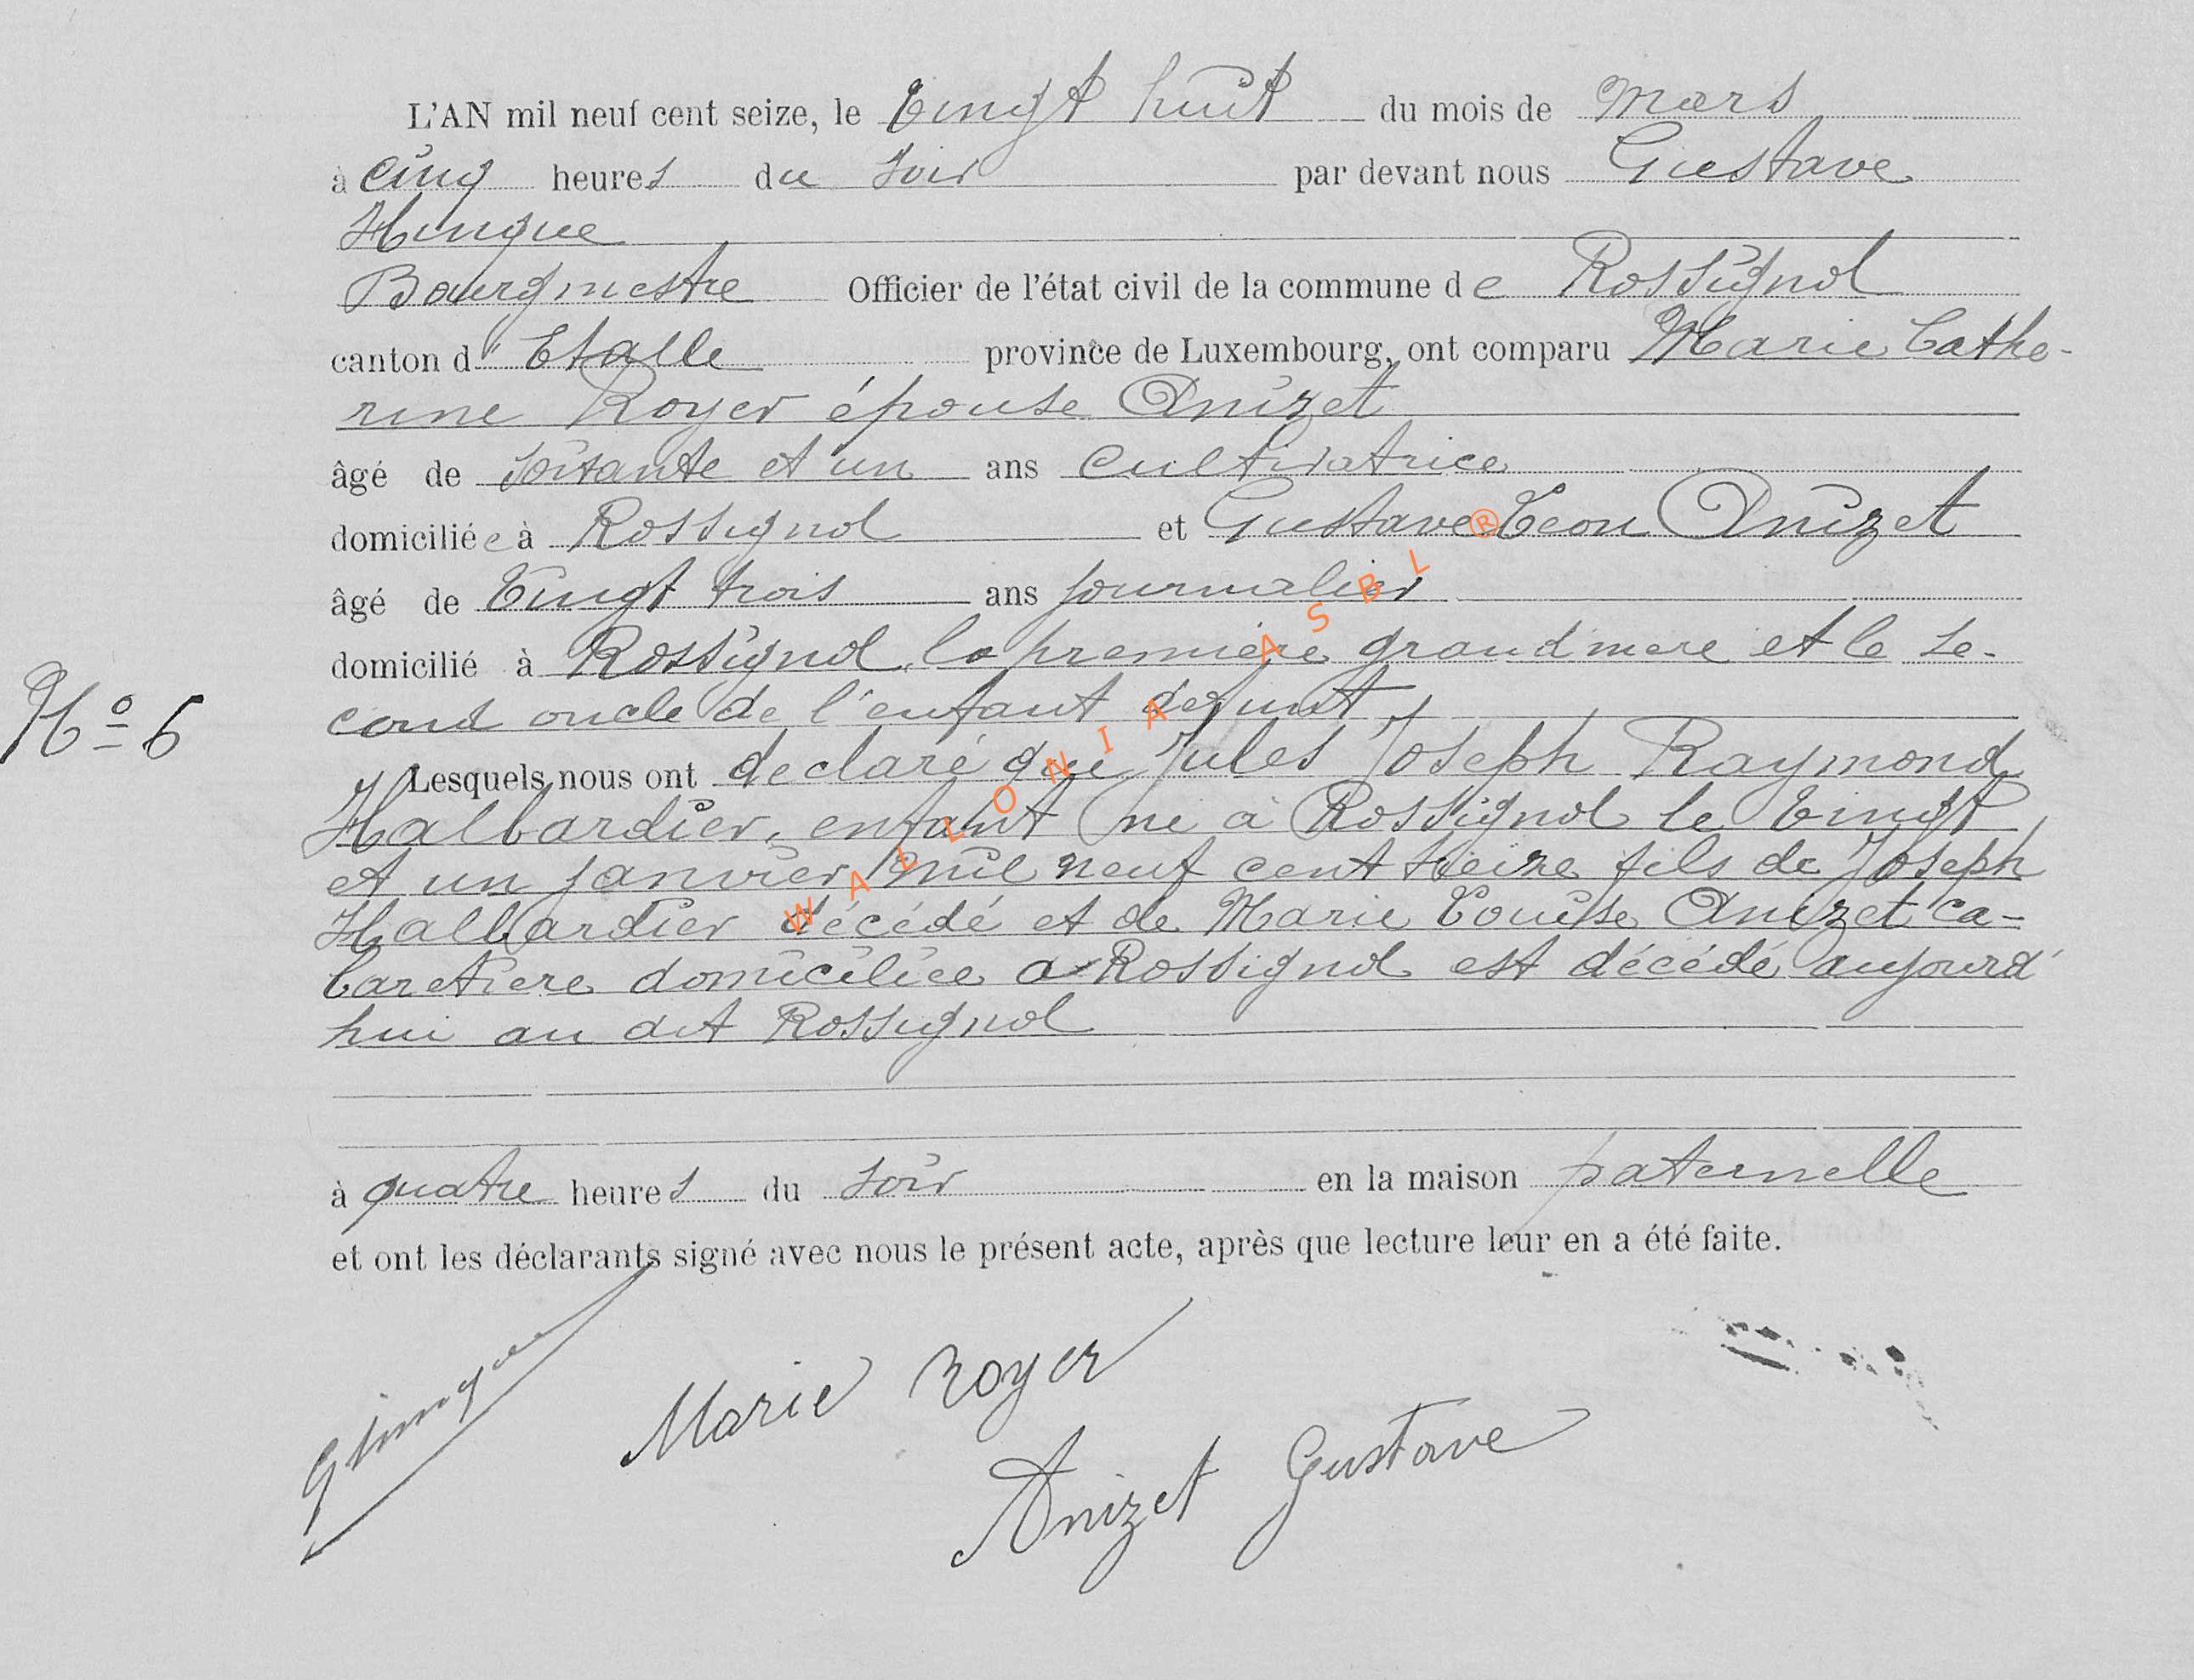 L'AN mil neuf cent seize, le vingt huit du mois de Mars
à cinq heures du soir par devant nous Gustave
Hinque
Bourgmestre Officier de l'état civil de la commune de Rossignol
canton d'Etalle province de Luxembourg, ont comparu Marie Cathe-
rine Royer épouse Anizet
âgé de soixante et un ans cultivatrice
domiciliée à Rossignol et Gustave Léon Anizet
âgé de vingt trois ans journalier
domicilié à Rossignol, la première grand'mere et le se-
cond oncle de l'enfant defunt
N° 6
Lesquels nous ont declaré que Jules Joseph Raymond
Halbardier, enfant né à Rossignol le vingt
et un janvier mil neuf cent treize fils de Joseph
Halbardier décédé et de Marie Louise Anizet ca-
baretiere domiciliée a Rossignol est décédé aujourd'
hui au dit Rossignol
à quatre heures du soir en la maison paternelle
et ont les déclarants signé avec nous le présent acte, après que lecture leur en a été faite.
GHinque
Marie Royer
Anizet Gustave
WALLONIA ASBL ®